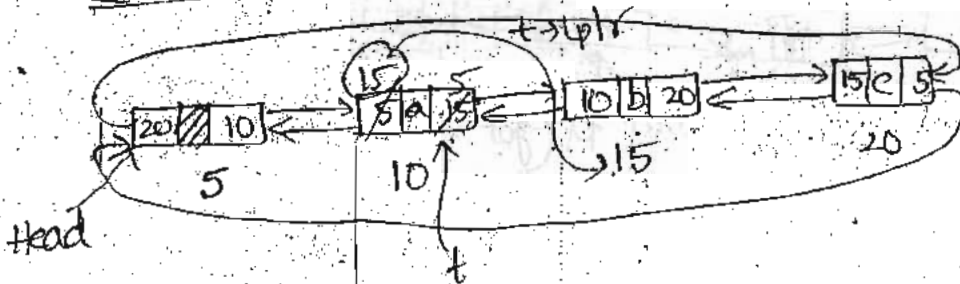 t→lptr
15 5
20 10 5 a 15 10 b 20 15 c 5
5 10 15 20
Head
t